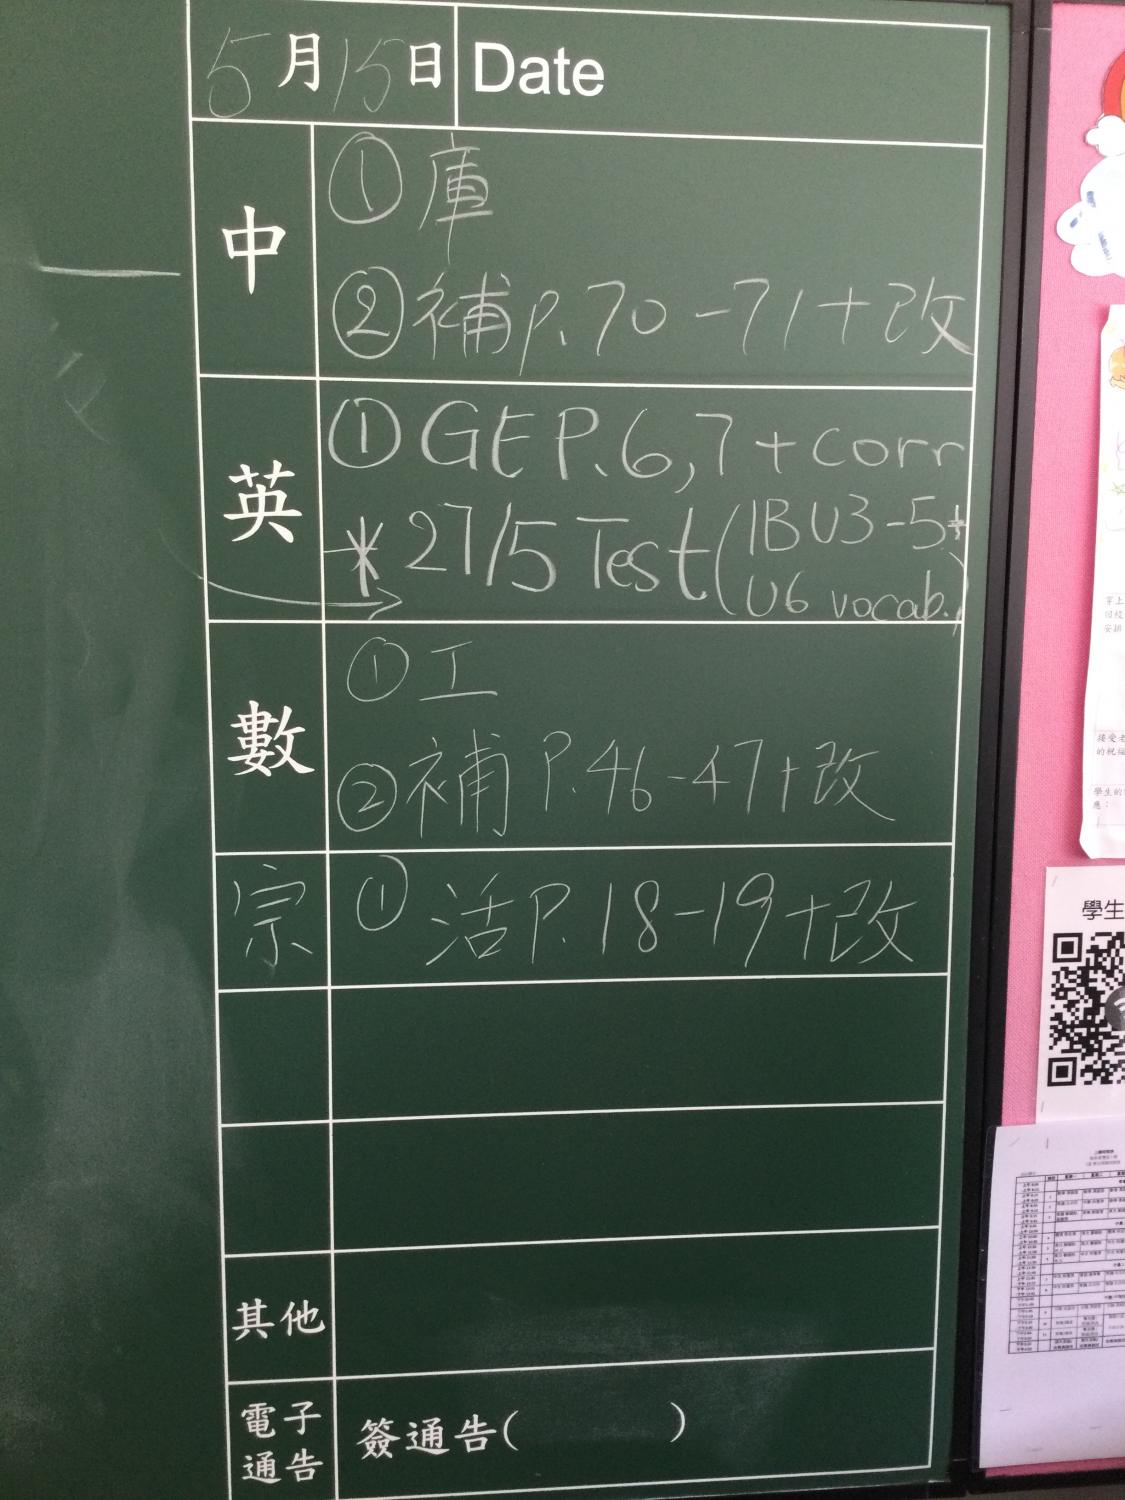 5月15日 Date
中
①庫
②補P.70-71+改
英
①GE P.6,7+corr
* 27/5 Test(1B U3-5+
U6 vocab.)
數
①工
②補P.46-47+改
宗
①活P.18-19+改
其他
電子
通告
簽通告( )
學生